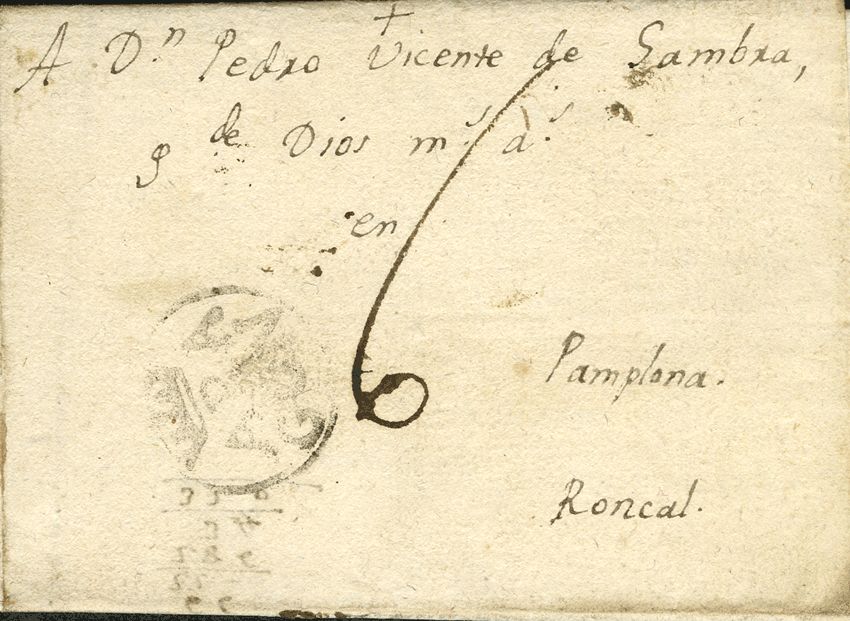 +
A Dⁿ Pedro Vicente de Gambra,
g de Dios mˢ aˢ
en
6
Pamplona.
Roncal.